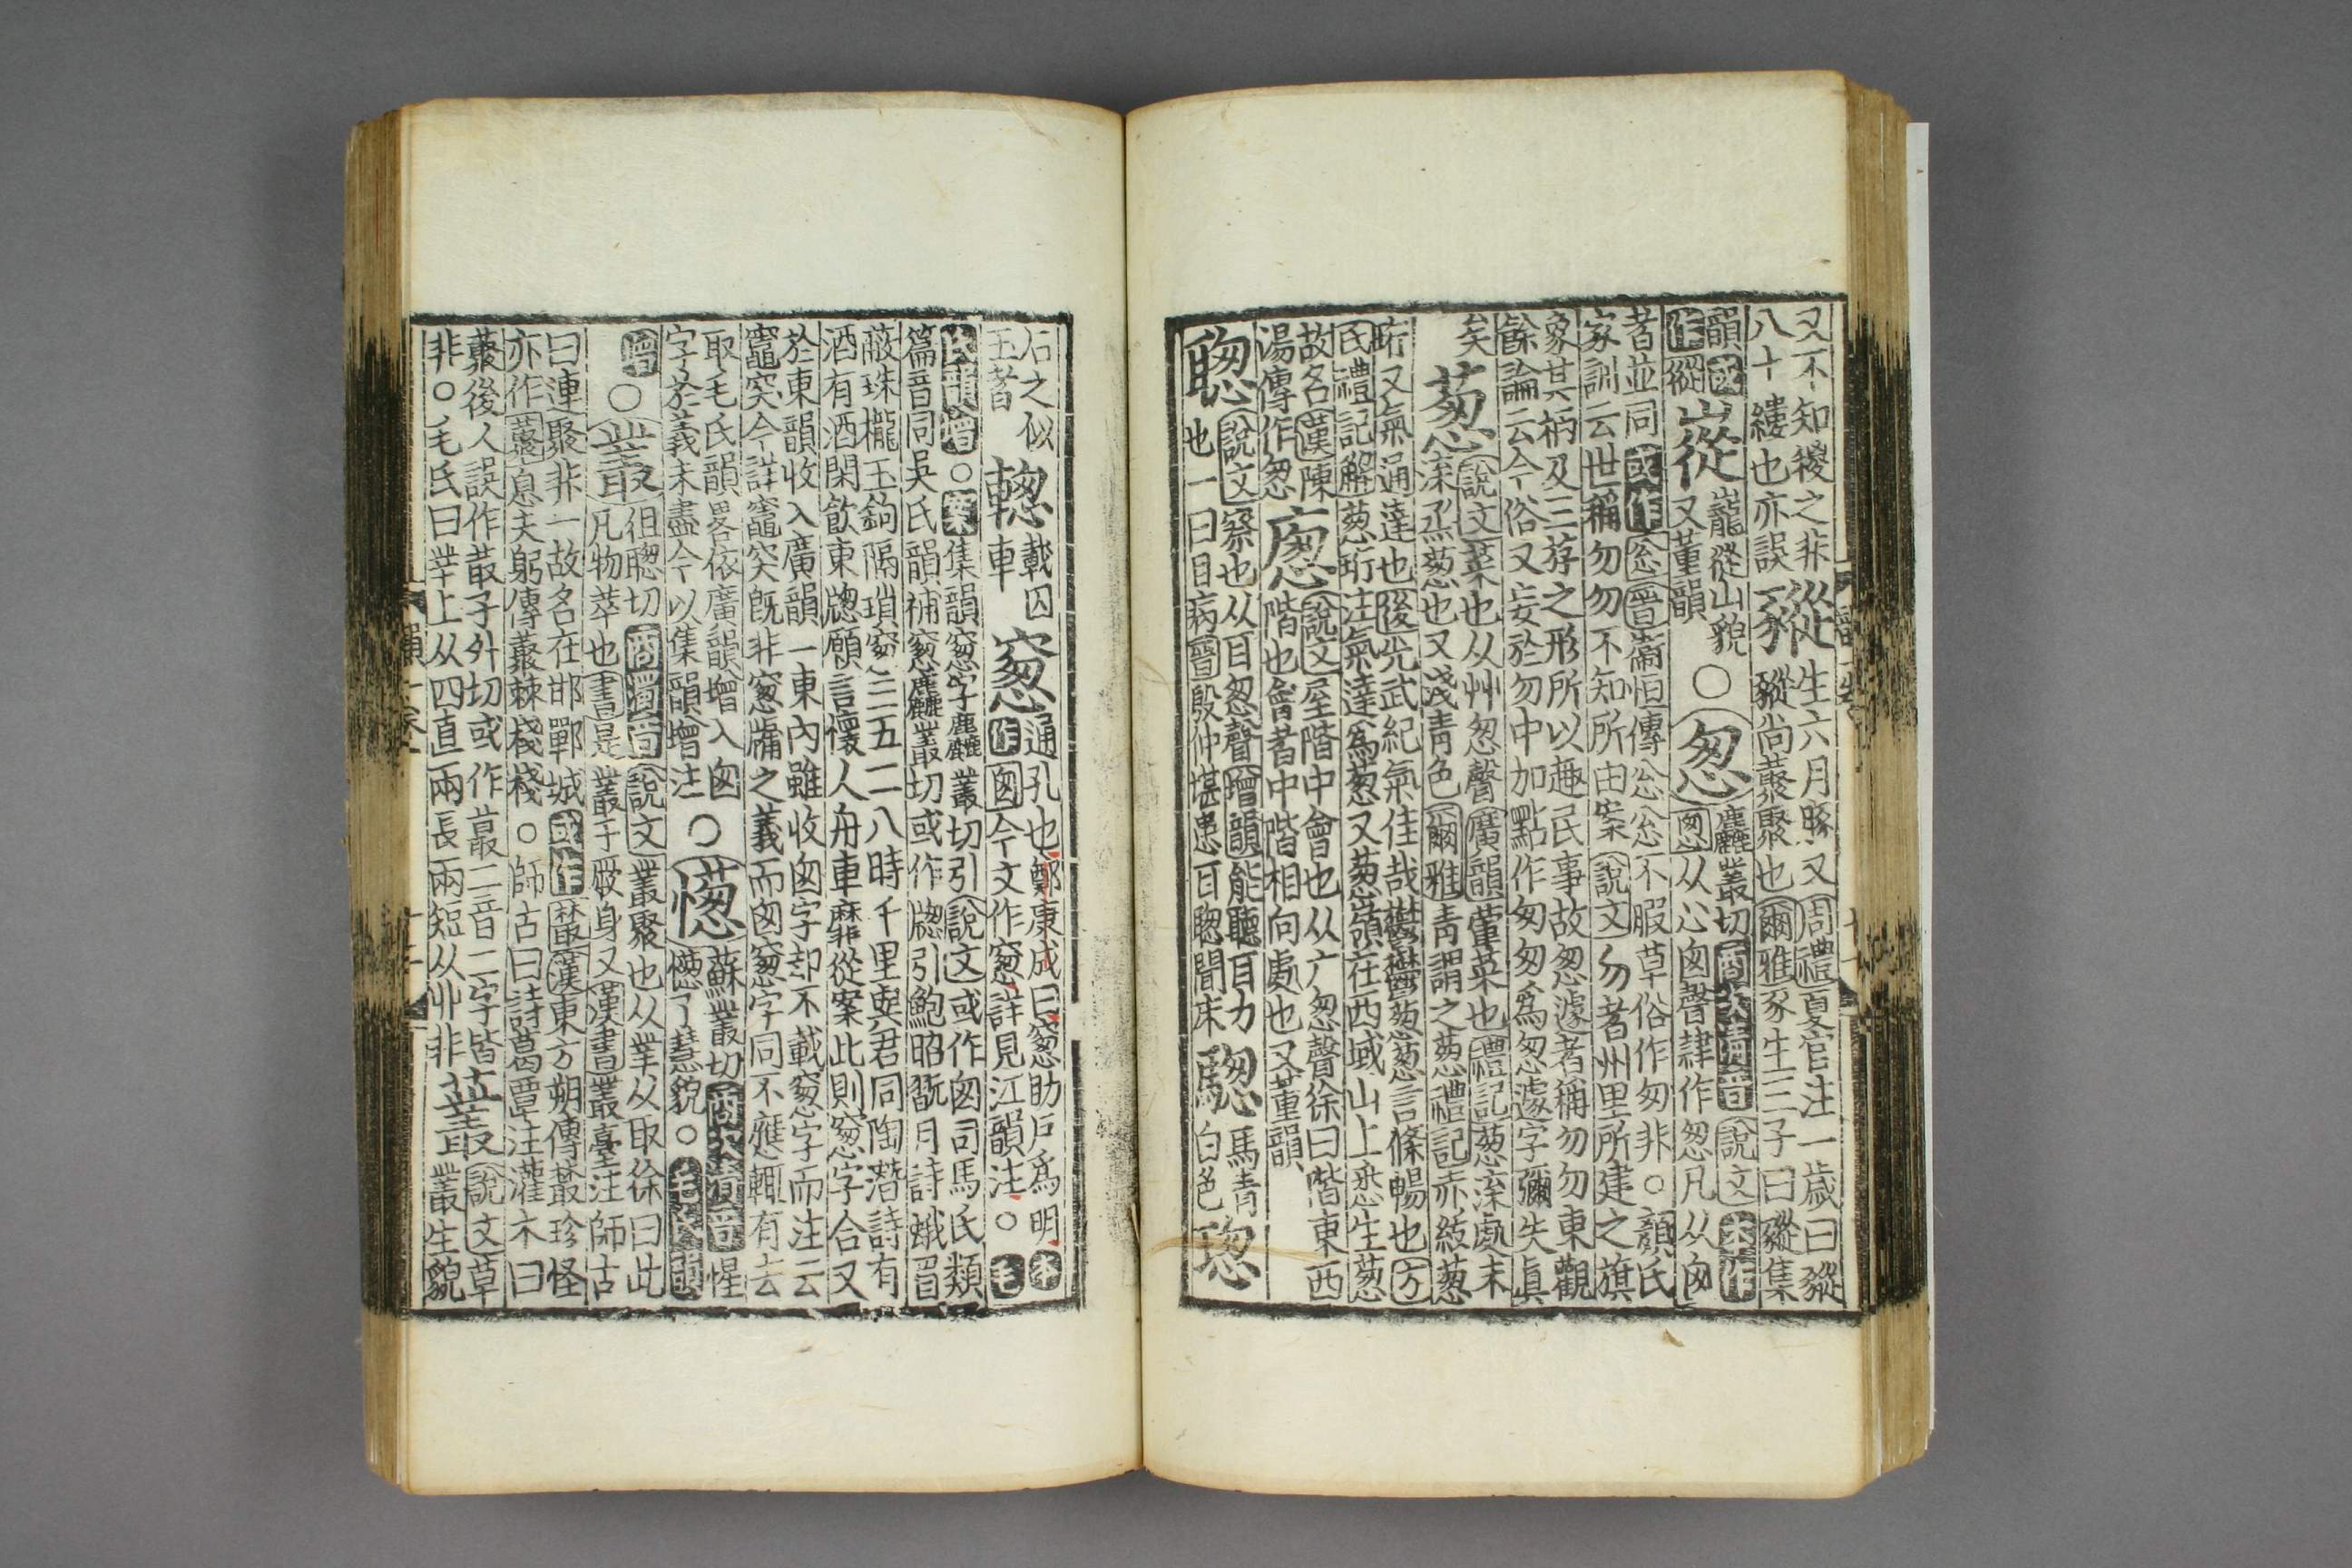 又不知稯之非
八十縷也亦誤
豵
生六月豚又周禮夏官注一歲曰豵
豵尚叢聚也爾雅豕生三子曰豵集
韻國
作䝋
嵸
巃嵸山貌
又董韻
〇
怱
麤叢切商次清音說文本作
悤从心囪聲隷作怱凡从囪
者並同國作忩晉衞恒傳忩忩不暇草俗作匆非〇顏氏
家訓云世稱勿勿不知所由案說文勿者州里所建之旗
象其柄及三斿之形所以趣民事故怱遽者稱勿勿東觀
餘論云今俗又妄於勿中加點作匆匆爲怱遽字彌失眞
矣
葱
說文菜也从艸怱聲廣韻葷菜也禮記葱渫處末
渫烝葱也又淺青色爾雅青謂之葱禮記赤紱葱
珩又氣通達也後光武紀氣佳哉鬱鬱葱葱言條暢也方
氏禮記解葱珩注氣達爲葱又葱嶺在西域山上悉生葱
故名漢陳
湯傳作怱
廖
說文屋階中會也从广怱聲徐曰階東西
階也會者中階相向處也又董韻
聰
說文察也从耳怱聲增韻能聽耳力
也一曰耳病晉殷仲堪患耳聰聞床
騘
馬青
白色
璁
石之似
玉者
轗
載囚
車
窻
通孔也鄭康成曰窻助戶爲明本
作囪今文作窻詳見江韻注〇毛
氏韻增〇案集韻窻字麤叢切引說文或作囪司馬氏類
篇音同吳氏韻補窻麤叢切或作牕引鮑昭翫月詩蛾眉
蔽珠櫳玉鉤隔瑣窻三五二八時千里與君同陶潛詩有
酒有酒閑飮東牕願言懷人舟車靡從案此則窻字合又
於東韻收入廣韻一東內雖收囪字却不載窻字而注云
竈突今詳竈突旣非窻牖之義而囪窻字同不應輒有去
取毛氏韻畧依廣韻增入囪
字於義未盡今以集韻增注
〇
憁
蘇叢切商次清音惺
憁了慧貌〇毛氏韻
增
〇
叢
徂聰切商濁音說文叢聚也从丵从取徐曰此
凡物萃也書是叢于厥身又漢書叢臺注師古
曰連聚非一故名在邯鄲城國作藂漢東方朔傳叢珍怪
亦作藂息夫躬傳藂棘棧棧〇師古曰詩葛覃注灌木曰
藂後人誤作菆子外切或作最二音二字皆
非〇毛氏曰丵上从四直兩長兩短从丱非
藂
說文草
叢生貌